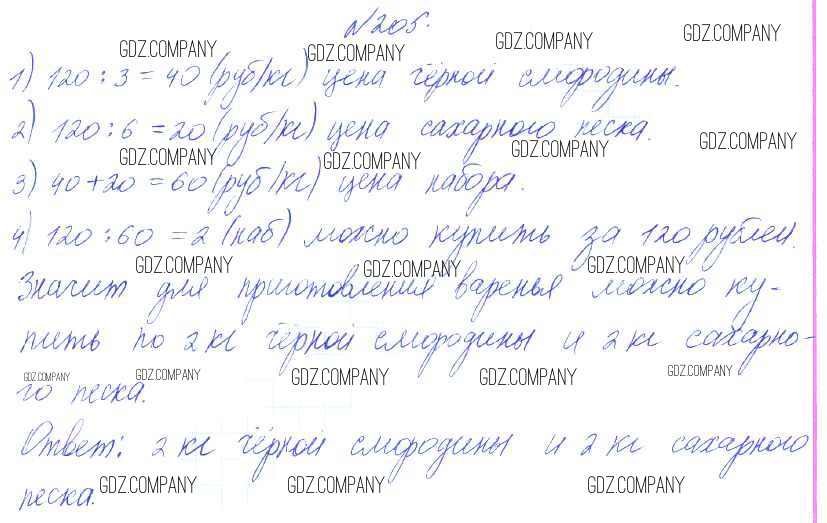 №205.
GDZ.COMPANY GDZ.COMPANY GDZ.COMPANY GDZ.COMPANY
1) 120 : 3 = 40 (руб/кг) цена чёрной смородины.
2) 120 : 6 = 20 (руб/кг) цена сахарного песка.
GDZ.COMPANY GDZ.COMPANY GDZ.COMPANY GDZ.COMPANY
3) 40 + 20 = 60 (руб/кг) цена набора.
4) 120 : 60 = 2 (наб) можно купить за 120 рублей.
GDZ.COMPANY GDZ.COMPANY GDZ.COMPANY
Значит для приготовления варенья можно ку-
пить по 2 кг чёрной смородины и 2 кг сахарно-
GDZ.COMPANY GDZ.COMPANY GDZ.COMPANY GDZ.COMPANY GDZ.COMPANY
го песка.
Ответ: 2 кг чёрной смородины и 2 кг сахарного
песка.
GDZ.COMPANY GDZ.COMPANY GDZ.COMPANY